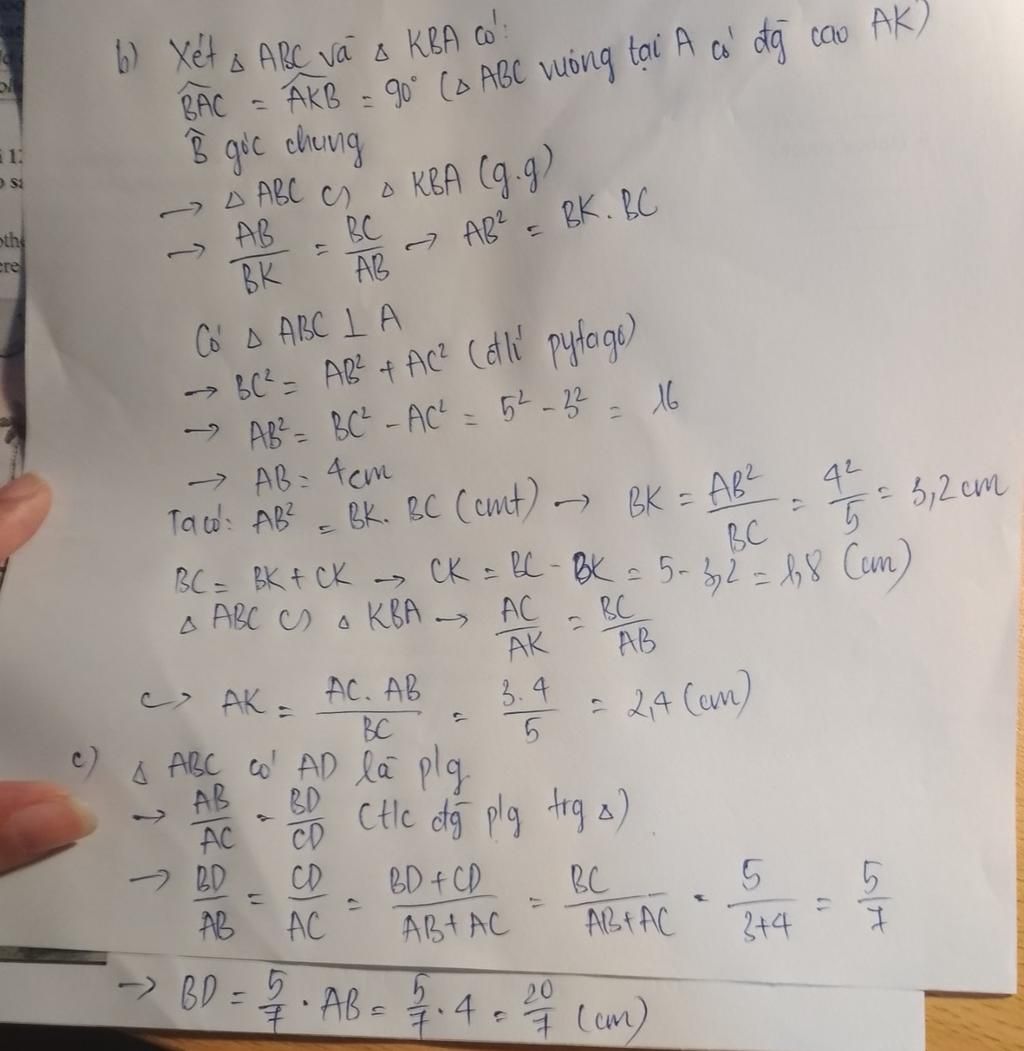 b) Xét △ ABC và △ KBA có:
BAC = AKB = 90° (△ ABC vuông tại A có đg cao AK)
B góc chung
→ △ ABC ᔕ △ KBA (g.g)
→ AB/BK = BC/AB → AB² = BK. BC
Có △ ABC ⊥ A
→ BC² = AB² + AC² (đlí pytago)
→ AB² = BC² - AC² = 5² - 3² = 16
→ AB = 4cm
Ta có: AB² = BK. BC (cmt) → BK = AB²/BC = 4²/5 = 3,2 cm
BC = BK + CK → CK = BC - BK = 5 - 3,2 = 1,8 (cm)
△ ABC ᔕ △ KBA → AC/AK = BC/AB
↪ AK = AC. AB/BC = 3. 4/5 = 2,4 (cm)
c) △ ABC có AD là p/g
→ AB/AC = BD/CD (t/c đg p/g trg △)
→ BD/AB = CD/AC = BD + CD/AB + AC = BC/AB + AC = 5/3+4 = 5/7
→ BD = 5/7 . AB = 5/7 . 4 = 20/7 (cm)